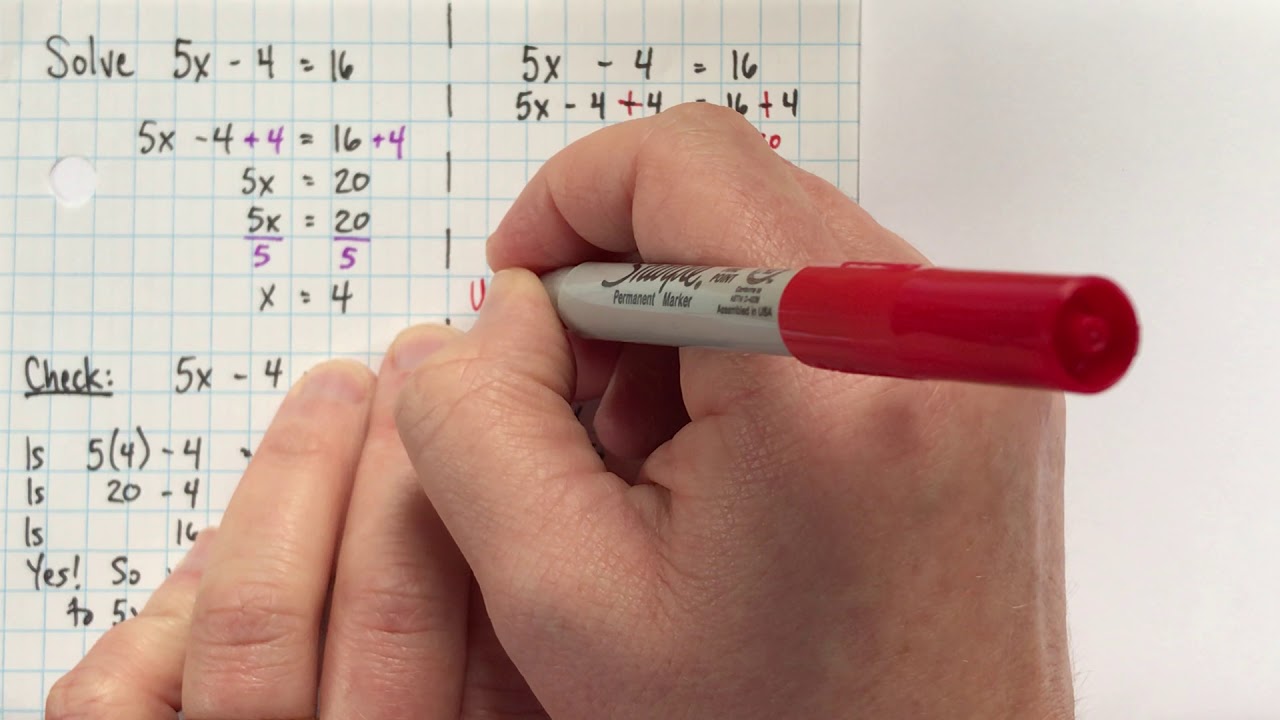 Solve 5x - 4 = 16
5x - 4 + 4 = 16 + 4
5x = 20
5x = 20
5 5
x = 4
Check: 5x - 4
Is 5(4) - 4 =
Is 20 - 4
Is 16
Yes! So
to 5x
5x - 4 = 16
5x - 4 + 4 = 16 + 4
Sharpie.
POINT
Permanent Marker
Conforms to
ASTM D-4236
Assembled in USA